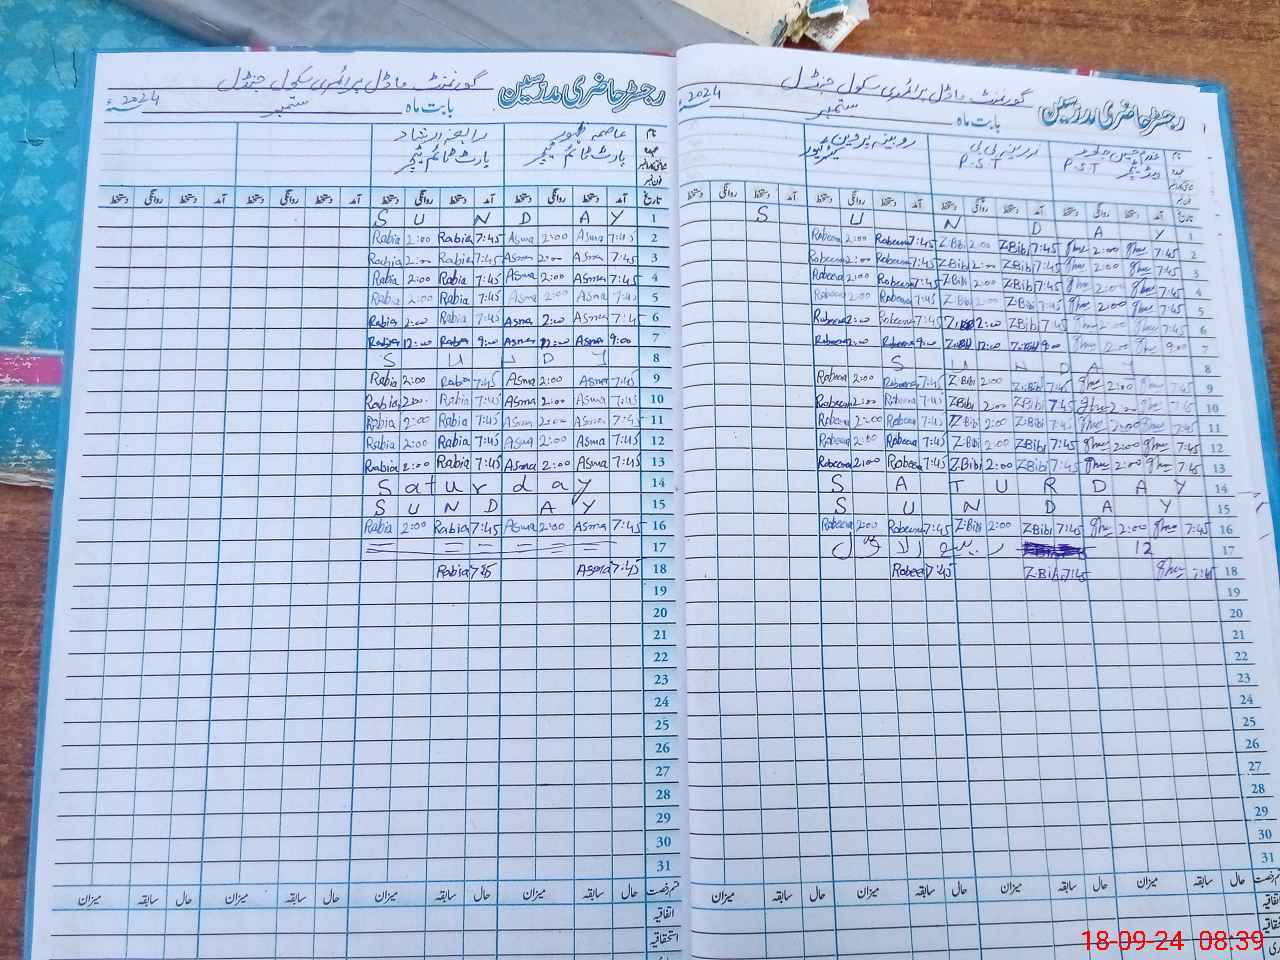 رجسٹر حاضری مدرسین گورنمنٹ ماڈل پرائمری سکول جنڈل
بابت ماہ ستمبر 2024ء
نام
P.S.T
زرینہ بی بی
P.S.T
روبینہ پروین
تاریخ آمد دستخط روانگی دستخط آمد دستخط روانگی دستخط آمد دستخط روانگی دستخط آمد دستخط روانگی دستخط
1 S U N D A Y
2 Robeena 2:00 Robeena 7:45 Z.Bibi 2:00 Z.Bibi 7:45 2:00 7:45
3 Robeena 2:00 Robeena 7:45 Z.Bibi 2:00 Z.Bibi 7:45 2:00 7:45
4 Robeena 2:00 Robeena 7:45 Z.Bibi 2:00 Z.Bibi 7:45 2:00 7:45
5 Robeena 2:00 Robeena 7:45 Z.Bibi 2:00 Z.Bibi 7:45 2:00 7:45
6 Robeena 2:00 Robeena 7:45 2:00 Z.Bibi 7:45 2:00 7:45
7 Robeena 12:00 Robeena 9:00 Z.Bibi 12:00 Z.Bibi 9:00 12:00 9:00
8 S U N D A Y
9 Robeena 2:00 Robeena 7:45 Z.Bibi 2:00 Z.Bibi 7:45 2:00 7:45
10 Robeena 2:00 Robeena 7:45 Z.Bibi 2:00 Z.Bibi 7:45 2:00 7:45
11 Robeena 2:00 Robeena 7:45 Z.Bibi 2:00 Z.Bibi 7:45 2:00 7:45
12 Robeena 2:00 Robeena 7:45 Z.Bibi 2:00 Z.Bibi 7:45 2:00 7:45
13 Robeena 2:00 Robeena 7:45 Z.Bibi 2:00 Z.Bibi 7:45 2:00 7:45
14 S A T U R D A Y
15 S U N D A Y
16 Robeena 2:00 Robeena 7:45 Z.Bibi 2:00 Z.Bibi 7:45 2:00 7:45
17 12 ربیع الاول
18 Robeena 7:45 Z.Bibi 7:45 7:45
19
20
21
22
23
24
25
26
27
28
29
30
31
حال سابقہ میزان حال سابقہ میزان حال سابقہ میزان حال سابقہ میزان
رجسٹر حاضری مدرسین گورنمنٹ ماڈل پرائمری سکول جنڈل
بابت ماہ ستمبر 2024ء
نام عاصمہ ظہور رابعہ ارشاد
پارٹ ٹائم ٹیچر پارٹ ٹائم ٹیچر
تاریخ آمد دستخط روانگی دستخط آمد دستخط روانگی دستخط آمد دستخط روانگی دستخط آمد دستخط روانگی دستخط
1 S U N D A Y
2 Rabia 2:00 Rabia 7:45 Asma 2:00 Asma 7:45
3 Rabia 2:00 Rabia 7:45 Asma 2:00 Asma 7:45
4 Rabia 2:00 Rabia 7:45 Asma 2:00 Asma 7:45
5 Rabia 2:00 Rabia 7:45 Asma 2:00 Asma 7:45
6 Rabia 2:00 Rabia 7:45 Asma 2:00 Asma 7:45
7 Rabia 12:00 Rabia 9:00 Asma 12:00 Asma 9:00
8 S U N D A Y
9 Rabia 2:00 Rabia 7:45 Asma 2:00 Asma 7:45
10 Rabia 2:00 Rabia 7:45 Asma 2:00 Asma 7:45
11 Rabia 2:00 Rabia 7:45 Asma 2:00 Asma 7:45
12 Rabia 2:00 Rabia 7:45 Asma 2:00 Asma 7:45
13 Rabia 2:00 Rabia 7:45 Asma 2:00 Asma 7:45
14 S a t u r d a y
15 S U N D A Y
16 Rabia 2:00 Rabia 7:45 Asma 2:00 Asma 7:45
17
18 Rabia 7:45 Asma 7:45
19
20
21
22
23
24
25
26
27
28
29
30
31
قسم رخصت حال سابقہ میزان حال سابقہ میزان حال سابقہ میزان حال سابقہ میزان
اتفاقیہ
استحقاقیہ
18-09-24 08:39